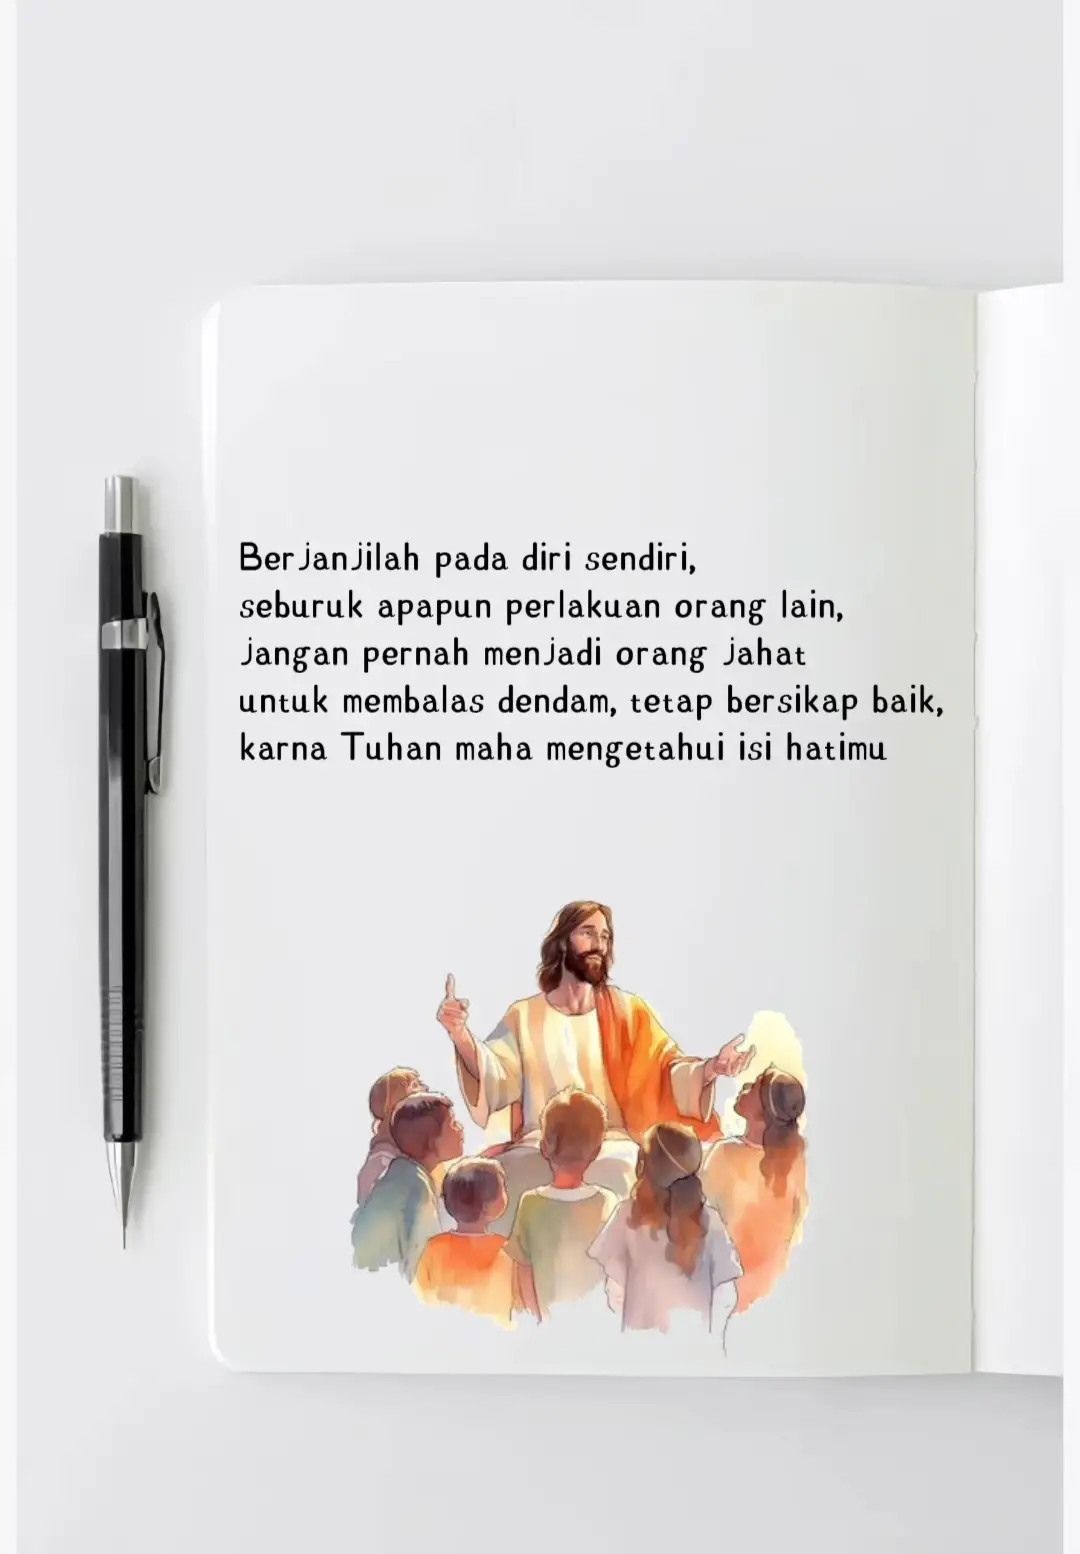 Berjanjilah pada diri sendiri,
seburuk apapun perlakuan orang lain,
jangan pernah menjadi orang jahat
untuk membalas dendam, tetap bersikap baik,
karna Tuhan maha mengetahui isi hatimu